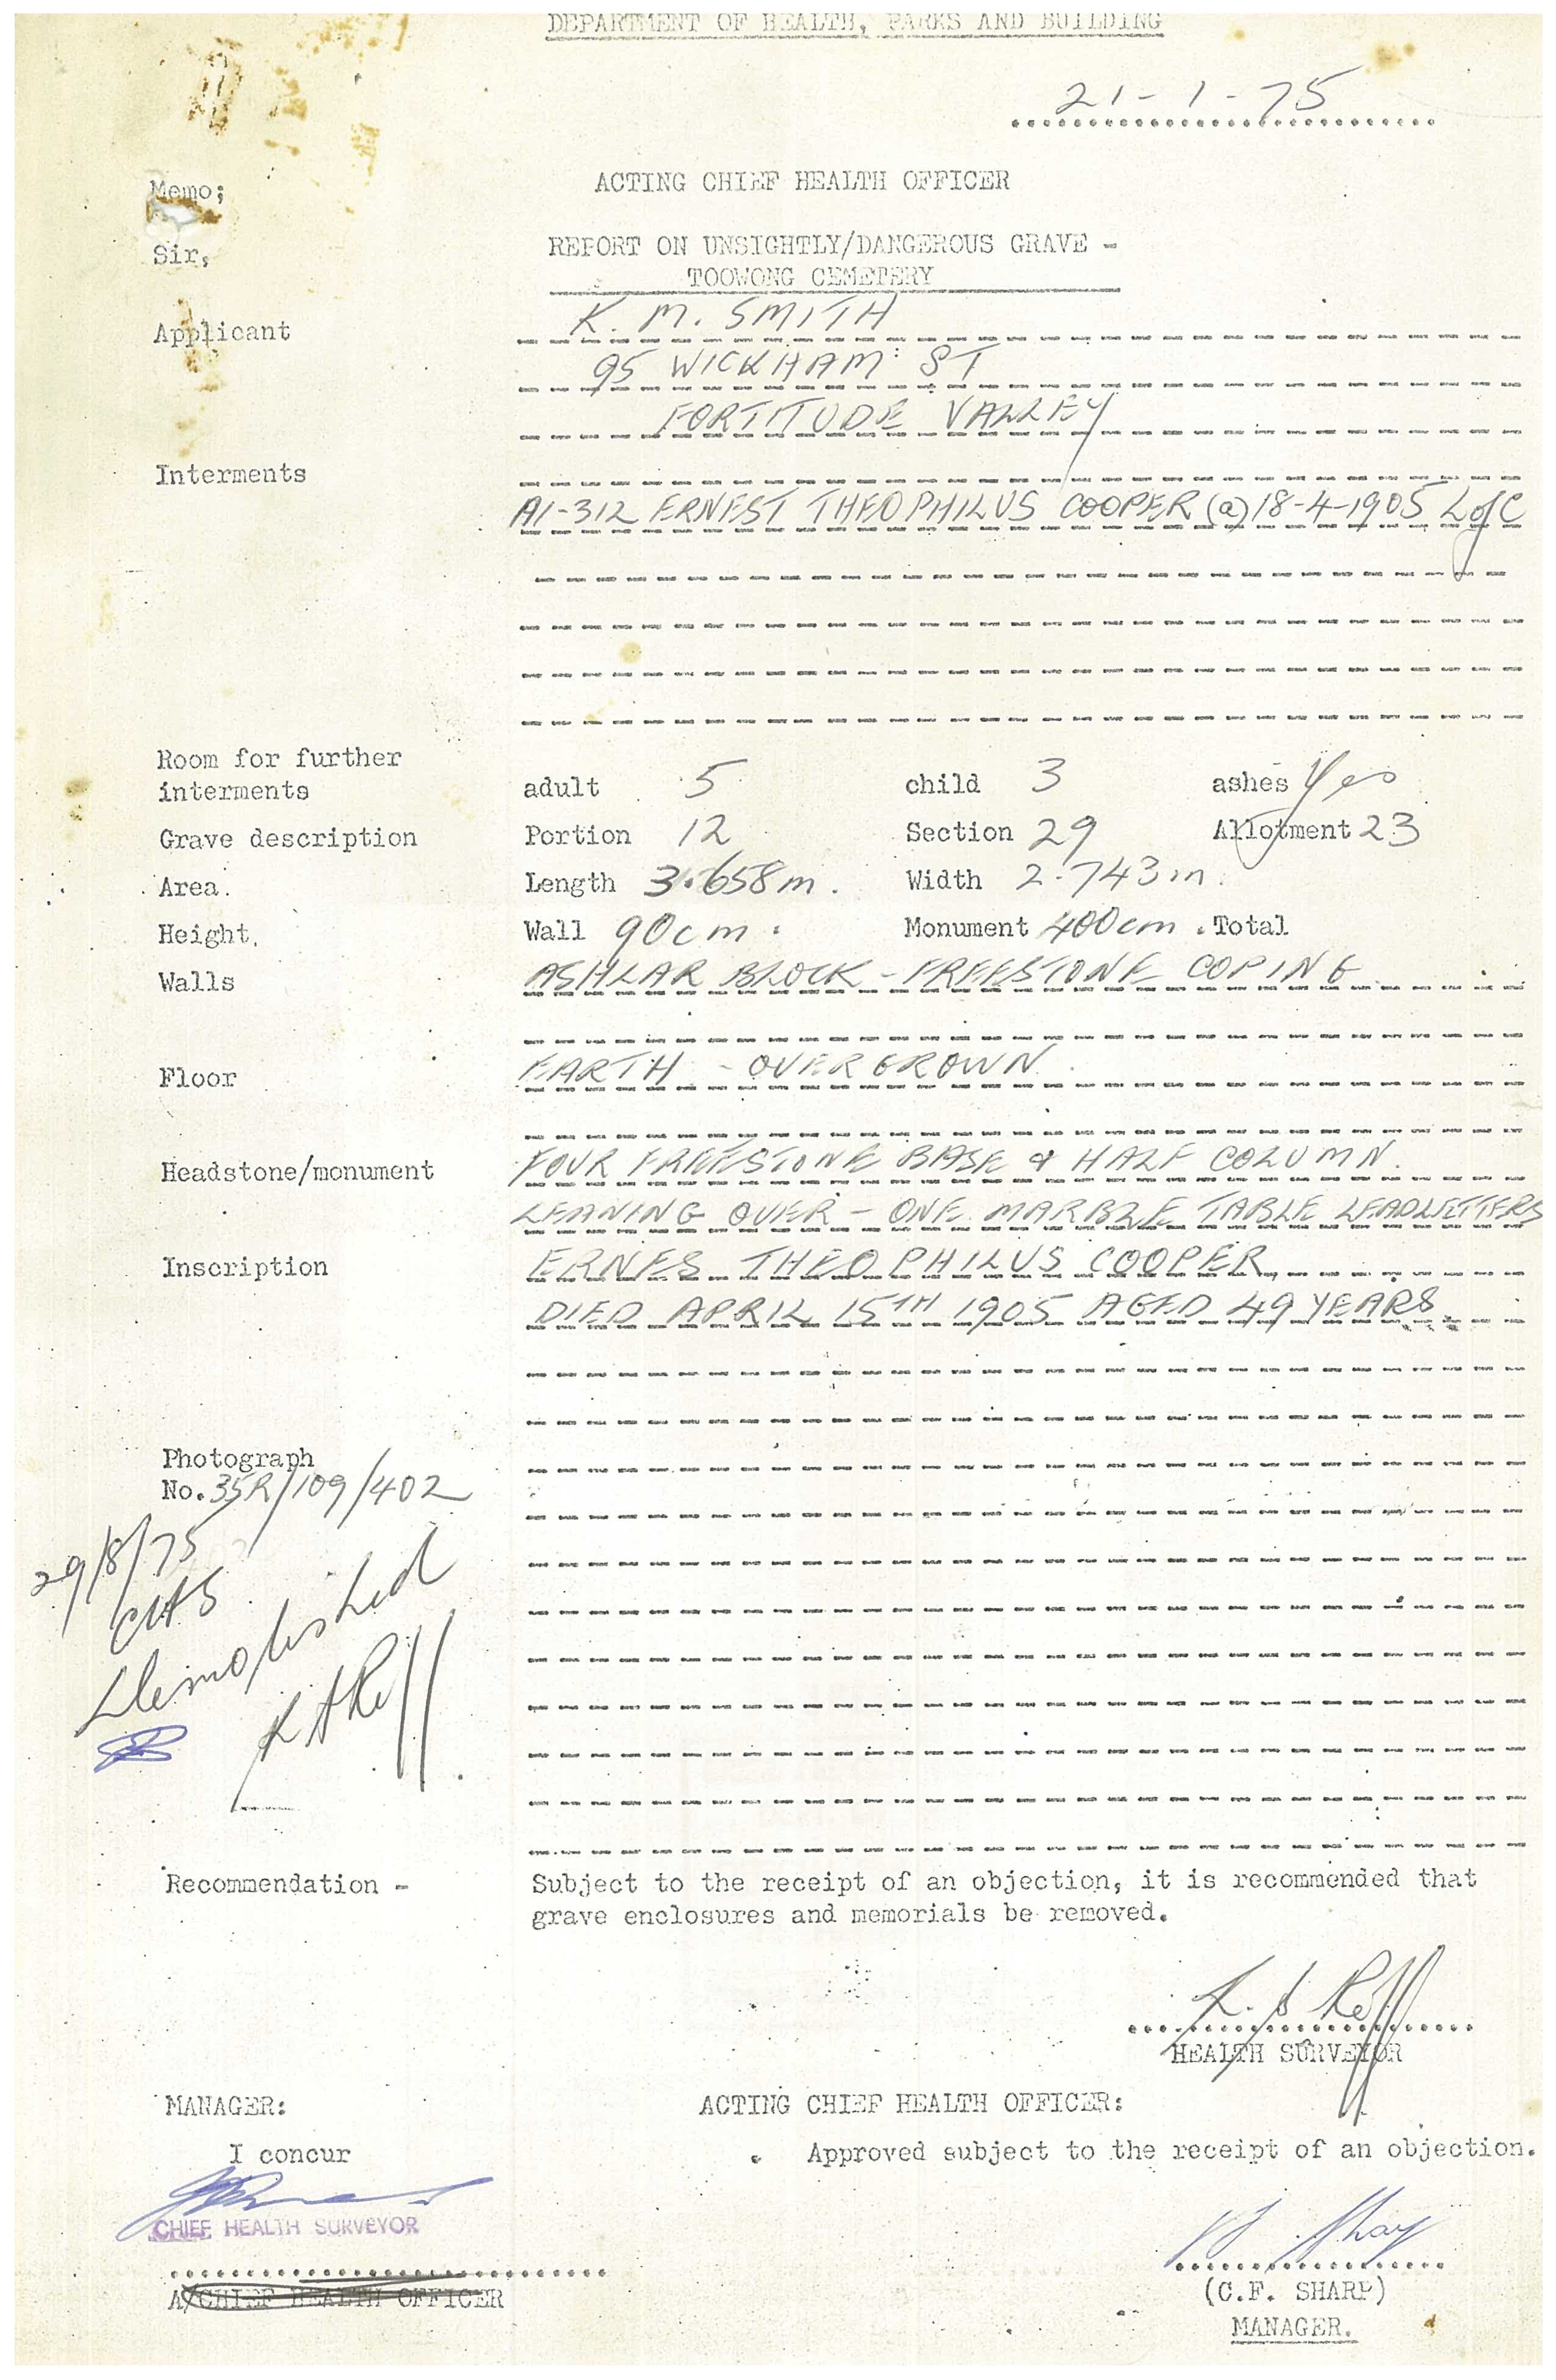 DEPARTMENT OF HEALTH, PARKS AND BUILDING
21-1-75
Memo; ACTING CHIEF HEALTH OFFICER
Sir, REPORT ON UNSIGHTLY/DANGEROUS GRAVE -
TOOWONG CEMETERY
Applicant K. M. SMITH
95 WICKHAM ST
FORTITUDE VALLEY
Interments
A1-312 ERNEST THEOPHILUS COOPER (a) 18-4-1905 L of C
Room for further
interments adult 5 child 3 ashes Yes
Grave description Portion 12 Section 29 Allotment 23
Area. Length 3.658m. Width 2.743m.
Height. Wall 90cm. Monument 400cm. Total
Walls ASHLAR BLOCK - FREESTONE COPING
Floor EARTH - OVERGROWN
Headstone/monument FOUR FREESTONE BASE & HALF COLUMN.
LEANING OVER - ONE MARBLE TABLE LEADLETTERS
Inscription ERNES THEOPHILUS COOPER
DIED APRIL 15TH 1905 AGED 49 YEARS
Photograph
No. 35R/109/402
29/8/75
CHS
Demolished
Recommendation - Subject to the receipt of an objection, it is recommended that
grave enclosures and memorials be removed.
HEALTH SURVEYOR
MANAGER: ACTING CHIEF HEALTH OFFICER:
I concur Approved subject to the receipt of an objection.
CHIEF HEALTH SURVEYOR
A/CHIEF HEALTH OFFICER (C.F. SHARP)
MANAGER.